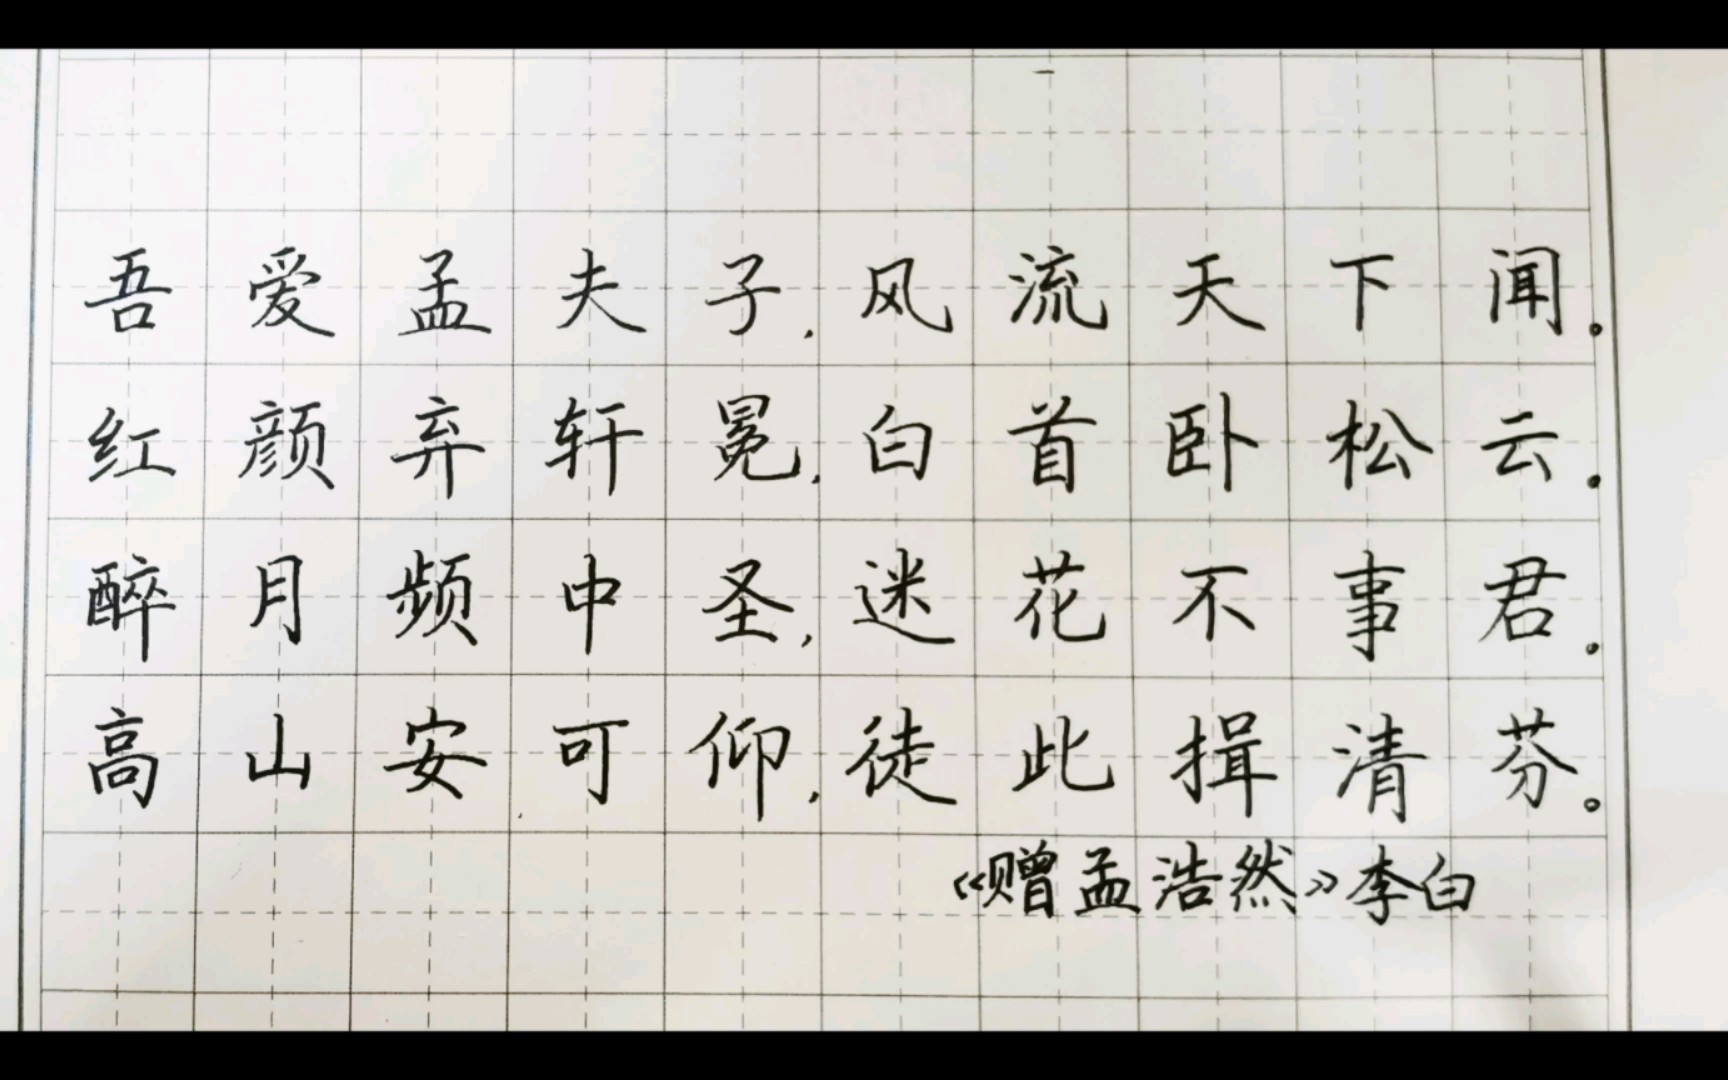 吾爱孟夫子,风流天下闻。
红颜弃轩冕,白首卧松云。
醉月频中圣,迷花不事君。
高山安可仰,徒此揖清芬。
《赠孟浩然》李白